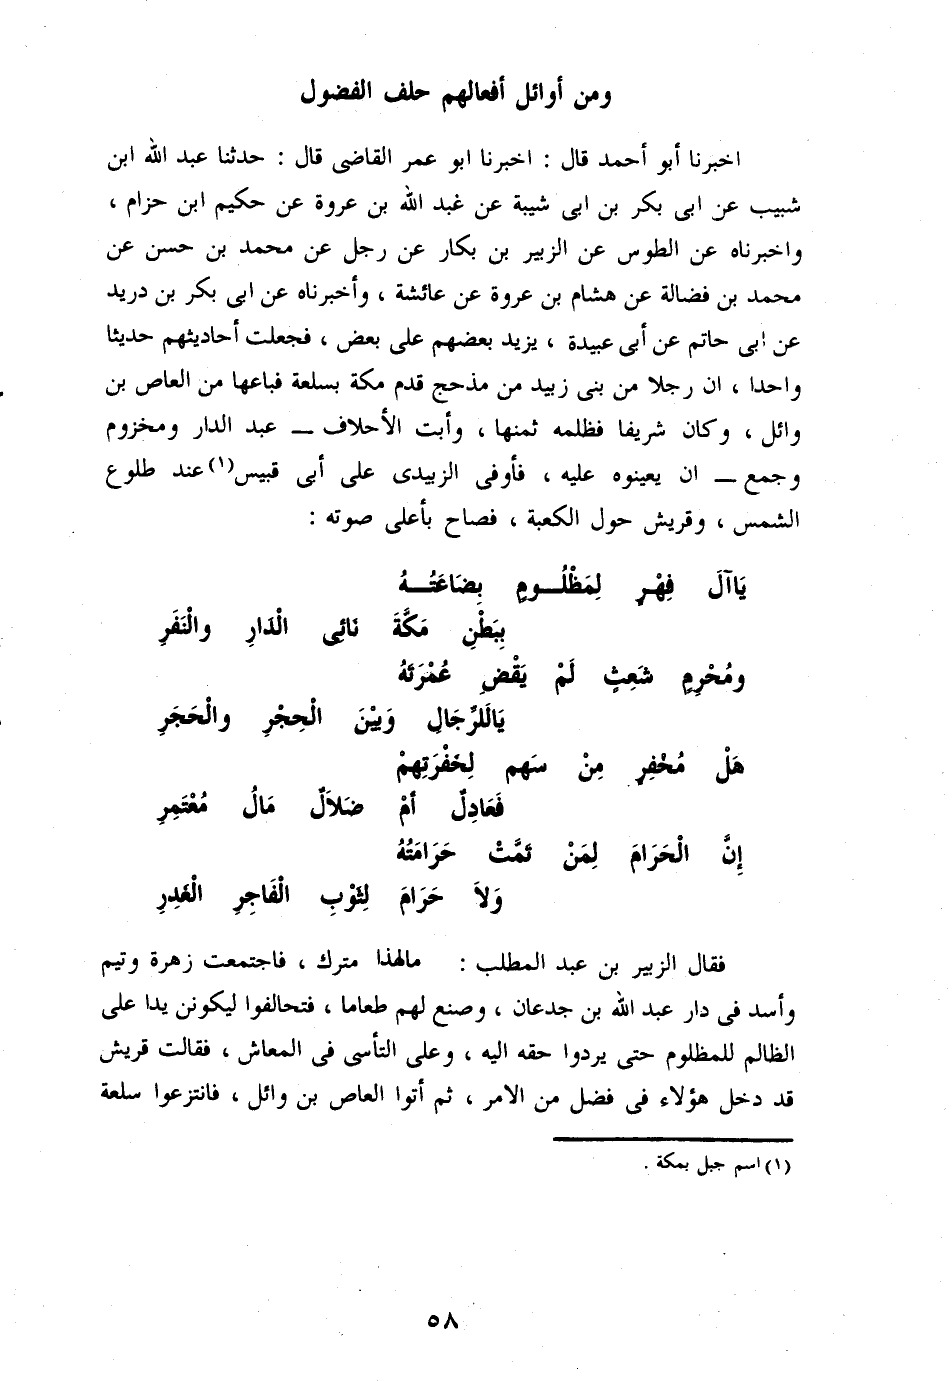 ومن أوائل أفعالهم حلف الفضول
اخبرنا أبو أحمد قال : اخبرنا ابو عمر القاضى قال : حدثنا عبد الله ابن
شبيب عن ابى بكر بن ابى شيبة عن غبد الله بن عروة عن حكيم ابن حزام ،
واخبرناه عن الطوس عن الزبير بن بكار عن رجل عن محمد بن حسن عن
محمد بن فضالة عن هشام بن عروة عن عائشة ، وأخبرناه عن ابى بكر بن دريد
عن ابى حاتم عن أبى عبيدة ، يزيد بعضهم على بعض ، فجعلت أحاديثهم حديثا
واحدا ، ان رجلا من بنى زبيد من مذحج قدم مكة بسلعة فباعها من العاص بن
وائل ، وكان شريفا فظلمه ثمنها ، وأبت الأحلاف ــ عبد الدار ومخزوم
وجمع ــ ان يعينوه عليه ، فأوفى الزبيدى على أبى قبيس(١) عند طلوع
الشمس ، وقريش حول الكعبة ، فصاح بأعلى صوته :
يَاآلَ فِهْرٍ لِمَظْلُــومٍ بِضَاعَتُــهُ
بِبَطْنِ مَكَّةَ نَائِى الْدَارِ والْنَفَرِ
ومُحْرِمٍ شَعِثٍ لَمْ يَقْضِ عُمْرَتَهُ
يَالَلرِّجَالِ وَبَيْنَ الْحِجْرِ والْحَجَرِ
هَلْ مُخْفِرٍ مِنْ سَهم لِخَفْرَتِهِمْ
فَعَادِلٌ أمْ ضَلاَلٌ مَالُ مُعْتَمِرِ
إِنَّ الْحَرَامَ لِمَنْ تَمَّتْ حَرَامَتُهُ
وَلاَ حَرَامَ لِثَوْبِ الْفَاجِرِ الْغَدِرِ
فقال الزبير بن عبد المطلب : مالهذا مترك ، فاجتمعت زهرة وتيم
وأسد فى دار عبد الله بن جدعان ، وصنع لهم طعاما ، فتحالفوا ليكونن يدا على
الظالم للمظلوم حتى يردوا حقه اليه ، وعلى التأسى فى المعاش ، فقالت قريش
قد دخل هؤلاء فى فضل من الامر ، ثم أتوا العاص بن وائل ، فانتزعوا سلعة
(١) اسم جبل بمكة .
٥٨